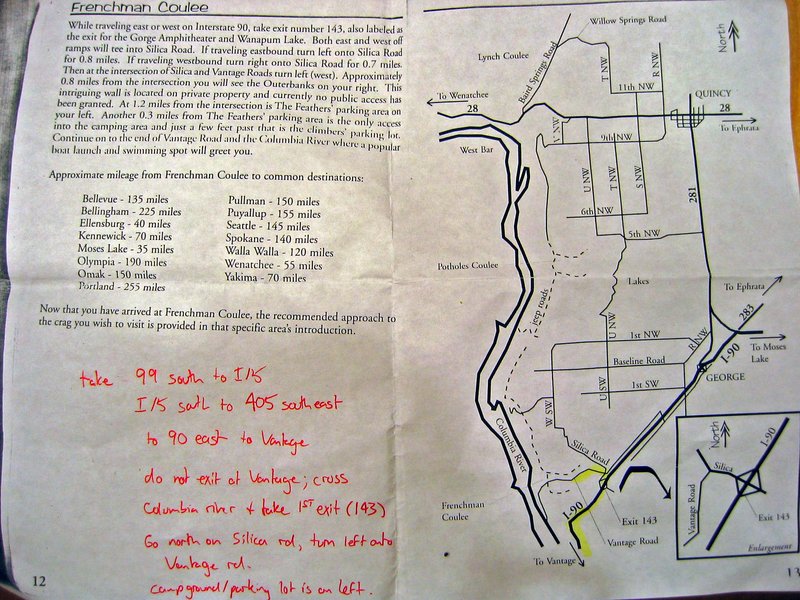 Frenchman Coulee
While traveling east or west on Interstate 90, take exit number 143, also labeled as
the exit for the Gorge Amphitheater and Wanapum Lake. Both east and west off
ramps will tee into Silica Road. If traveling eastbound turn left onto Silica Road
for 0.8 miles. If traveling westbound turn right onto Silica Road for 0.7 miles.
Then at the intersection of Silica and Vantage Roads turn left (west). Approximately
0.8 miles from the intersection you will see the Outerbanks on your right. This
intriguing wall is located on private property and currently no public access has
been granted. At 1.2 miles from the intersection is The Feathers' parking area on
your left. Another 0.3 miles from The Feathers' parking area is the only access
into the camping area and just a few feet past that is the climbers' parking lot.
Continue on to the end of Vantage Road and the Columbia River where a popular
boat launch and swimming spot will greet you.
Approximate mileage from Frenchman Coulee to common destinations:
Bellevue - 135 miles
Bellingham - 225 miles
Ellensburg - 40 miles
Kennewick - 70 miles
Moses Lake - 35 miles
Olympia - 190 miles
Omak - 150 miles
Portland - 255 miles
Pullman - 150 miles
Puyallup - 155 miles
Seattle - 145 miles
Spokane - 140 miles
Walla Walla - 120 miles
Wenatchee - 55 miles
Yakima - 70 miles
Now that you have arrived at Frenchman Coulee, the recommended approach to
the crag you wish to visit is provided in that specific area's introduction.
take 99 south to I/5
I/5 south to 405 southeast
to 90 east to Vantage
do not exit at Vantage; cross
Columbia river & take 1ST exit (143)
Go north on Silica rd, turn left onto
Vantage rd.
campground/parking lot is on left.
12
Willow Springs Road
North
Lynch Coulee
Baird Springs Road
T NW
R NW
11th NW
To Wenatchee
28
QUINCY
28
To Ephrata
V NW
9th NW
West Bar
U NW
T NW
S NW
281
6th NW
5th NW
Potholes Coulee
Lakes
jeep roads
To Ephrata
283
U NW
1st NW
R NW
I-90
To Moses
Lake
Baseline Road
GEORGE
U SW
1st SW
W SW
Columbia River
Silica Road
Frenchman
Coulee
I-90
Exit 143
Vantage Road
To Vantage
North
I-90
Silica
Vantage Road
Exit 143
Enlargement
13